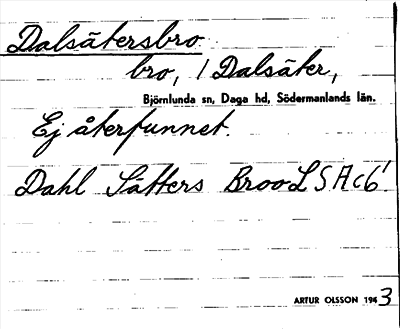 Dalsätersbro
bro, / Dalsäter,
Björnlunda sn, Daga hd, Södermanlands län.
Ej återfunnet.
Dahl Sätters Broo LSA c6¹
ARTUR OLSSON 1943